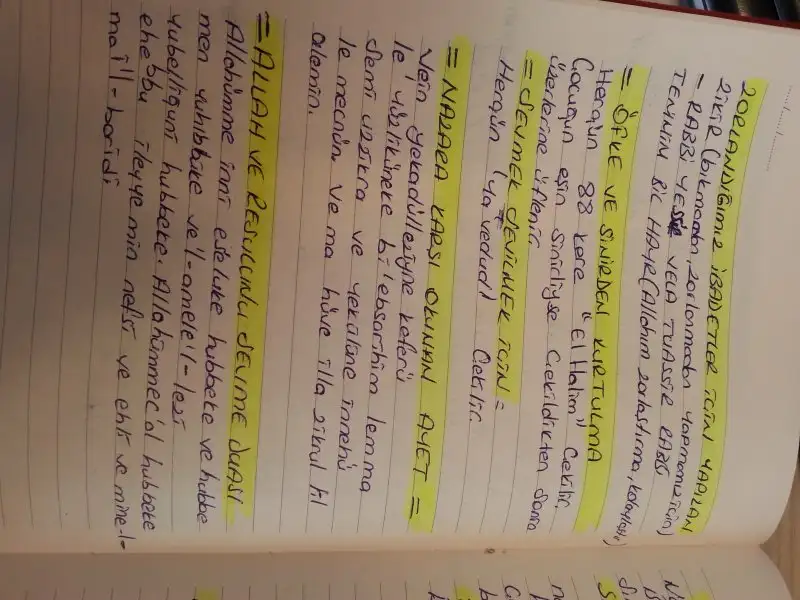 ZORLANDIĞIMIZ İBADETLER İÇİN YAPILAN
ZİKİR (bıkmadan, zorlanmadan yapmamız için)
- RABBİ YESSİR VELA TUASSİR RABBİ
TEMMİM BİL HAYR (Allahım zorlaştırma, kolaylaştır)
= ÖFKE VE SİNİRDEN KURTULMA
Hergün 88 kere "El Halim" Çekilir.
Çocuğun eşin sinirliyse Çekildikten Sonra
üzerlerine üflenir.
= SEVMEK SEVİLMEK İÇİN =
Hergün "Ya vedud" Çekilir.
= NAZARA KARŞI OKUNAN AYET =
Vein yekadülleziyne keferü
le yüzlikuneke bi'ebsarihim lemma
semi uzzikra ve yekulune innehü
le mecnün. Ve ma hüve illa zikrul lil
alemin.
= ALLAH VE RESULUNU SEVME DUASI
Allahümme inni eselüke hubbeke ve hubbe
men yuhıbbüke ve'l-amele'l-lezi
yubelliguni hubbeke. Allahümmec'al hubbeke
ehabbu ileyye min nefsi ve ehli ve mine'l-
mai'l-baridi